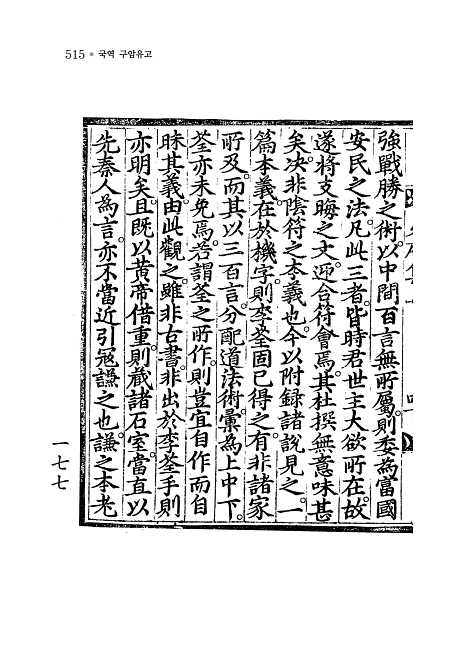 515 • 국역 구암유고
強戰勝之術以中間百言無所屬則委為富國
安民之法凡此三者皆時君世主大欲所在故
遂將支晦之文迎合符會焉其杜撰無意味甚
矣决非陰符之本義也今以附録諸說見之一
篇本義在於機字則李荃固已得之有非諸家
所及而其以三百言分配道法術彙為上中下
荃亦未免焉若謂荃之所作則豈宜自作而自
昧其義由此觀之雖非古書非出於李荃手則
亦明矣且既以黄帝借重則蔵諸石室當直以
先秦人為言亦不當近引冦謙之也謙之本老
一七七